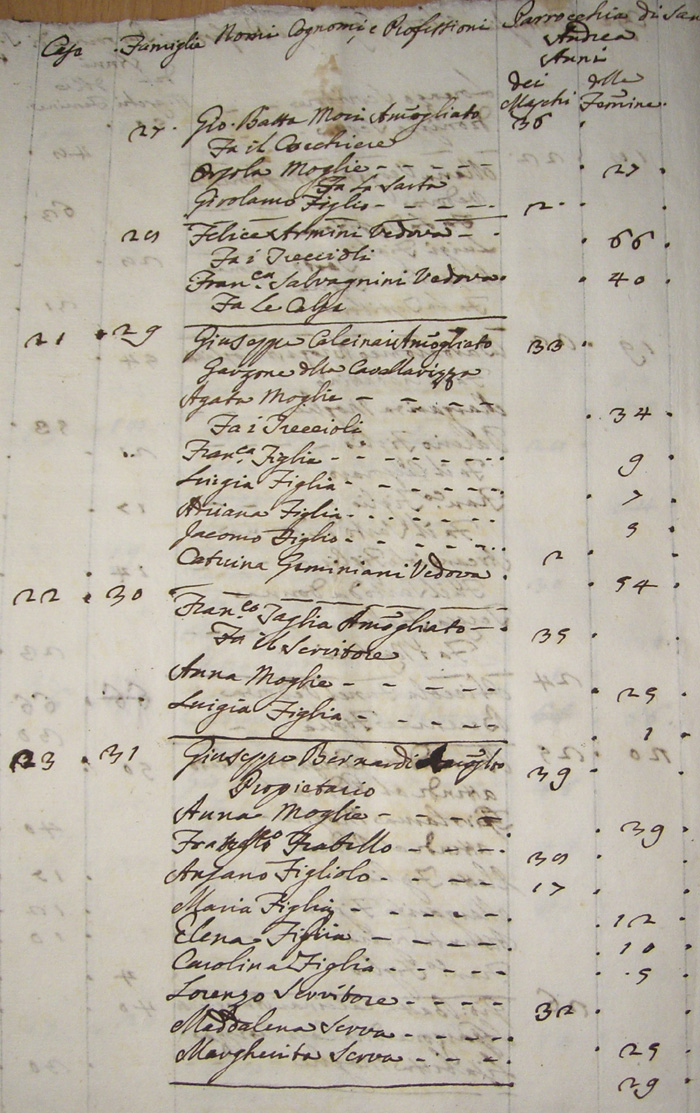 Case Famiglie Nomi Cognomi, e Professioni Parrocchia di San
Andrea
Anni
dei Maschi delle Femine
27 Gio. Batta Mori Amogliato 36
Fa il Cocchiere
Orsola Moglie 27
Fa la Sarta
Girolamo Figlio 2
28 Felice Armini Vedova 66
Fa i Treccioli
Fran.ca Salvagnini Vedova 40
Fa le Calze
21 29 Giuseppe Calcinai Amogliato 33
Garzone della Cavallarizza
Agata Moglie 34
Fa i Treccioli
Fran.ca Figlia 9
Luigia Figlia 7
Ariana Figlia 5
Jacomo Figlio 2
Catarina Geminiani Vedova 54
22 30 Fran.co Taglia Amogliato 35
Fa il Servitore
Anna Moglie 25
Luigia Figlia 1
23 31 Giuseppe Bernardi 39
Propietario
Anna Moglie 39
Fratello 30
Ansano Figliolo 17
Maria Figlia 12
Elena Figlia 10
Carolina Figlia 5
Lorenzo Servitore 32
Maddalena Serva 25
Margherita Serva 29